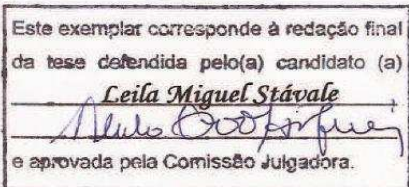 Este exemplar corresponde à redação final
da tese defendida pelo(a) candidato (a)
Leila Miguel Stávale
e aprovada pela Comissão Julgadora.